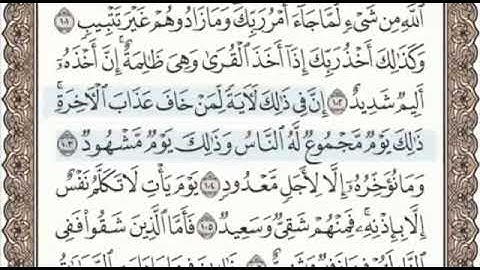 ٱللَّهِ مِن شَىْءٍ لَّمَّا جَآءَ أَمْرُ رَبِّكَ وَمَا زَادُوهُمْ غَيْرَ تَتْبِيبٍ ١٠١
وَكَذَٰلِكَ أَخْذُ رَبِّكَ إِذَآ أَخَذَ ٱلْقُرَىٰ وَهِىَ ظَٰلِمَةٌ إِنَّ أَخْذَهُۥٓ
أَلِيمٌ شَدِيدٌ ١٠٢ إِنَّ فِى ذَٰلِكَ لَءَايَةً لِّمَنْ خَافَ عَذَابَ ٱلْءَاخِرَةِ
ذَٰلِكَ يَوْمٌ مَّجْمُوعٌ لَّهُ ٱلنَّاسُ وَذَٰلِكَ يَوْمٌ مَّشْهُودٌ ١٠٣
وَمَا نُؤَخِّرُهُۥٓ إِلَّا لِأَجَلٍ مَّعْدُودٍ ١٠٤ يَوْمَ يَأْتِ لَا تَكَلَّمُ نَفْسٌ
إِلَّا بِإِذْنِهِۦ فَمِنْهُمْ شَقِىٌّ وَسَعِيدٌ ١٠٥ فَأَمَّا ٱلَّذِينَ شَقُوا۟ فَفِى